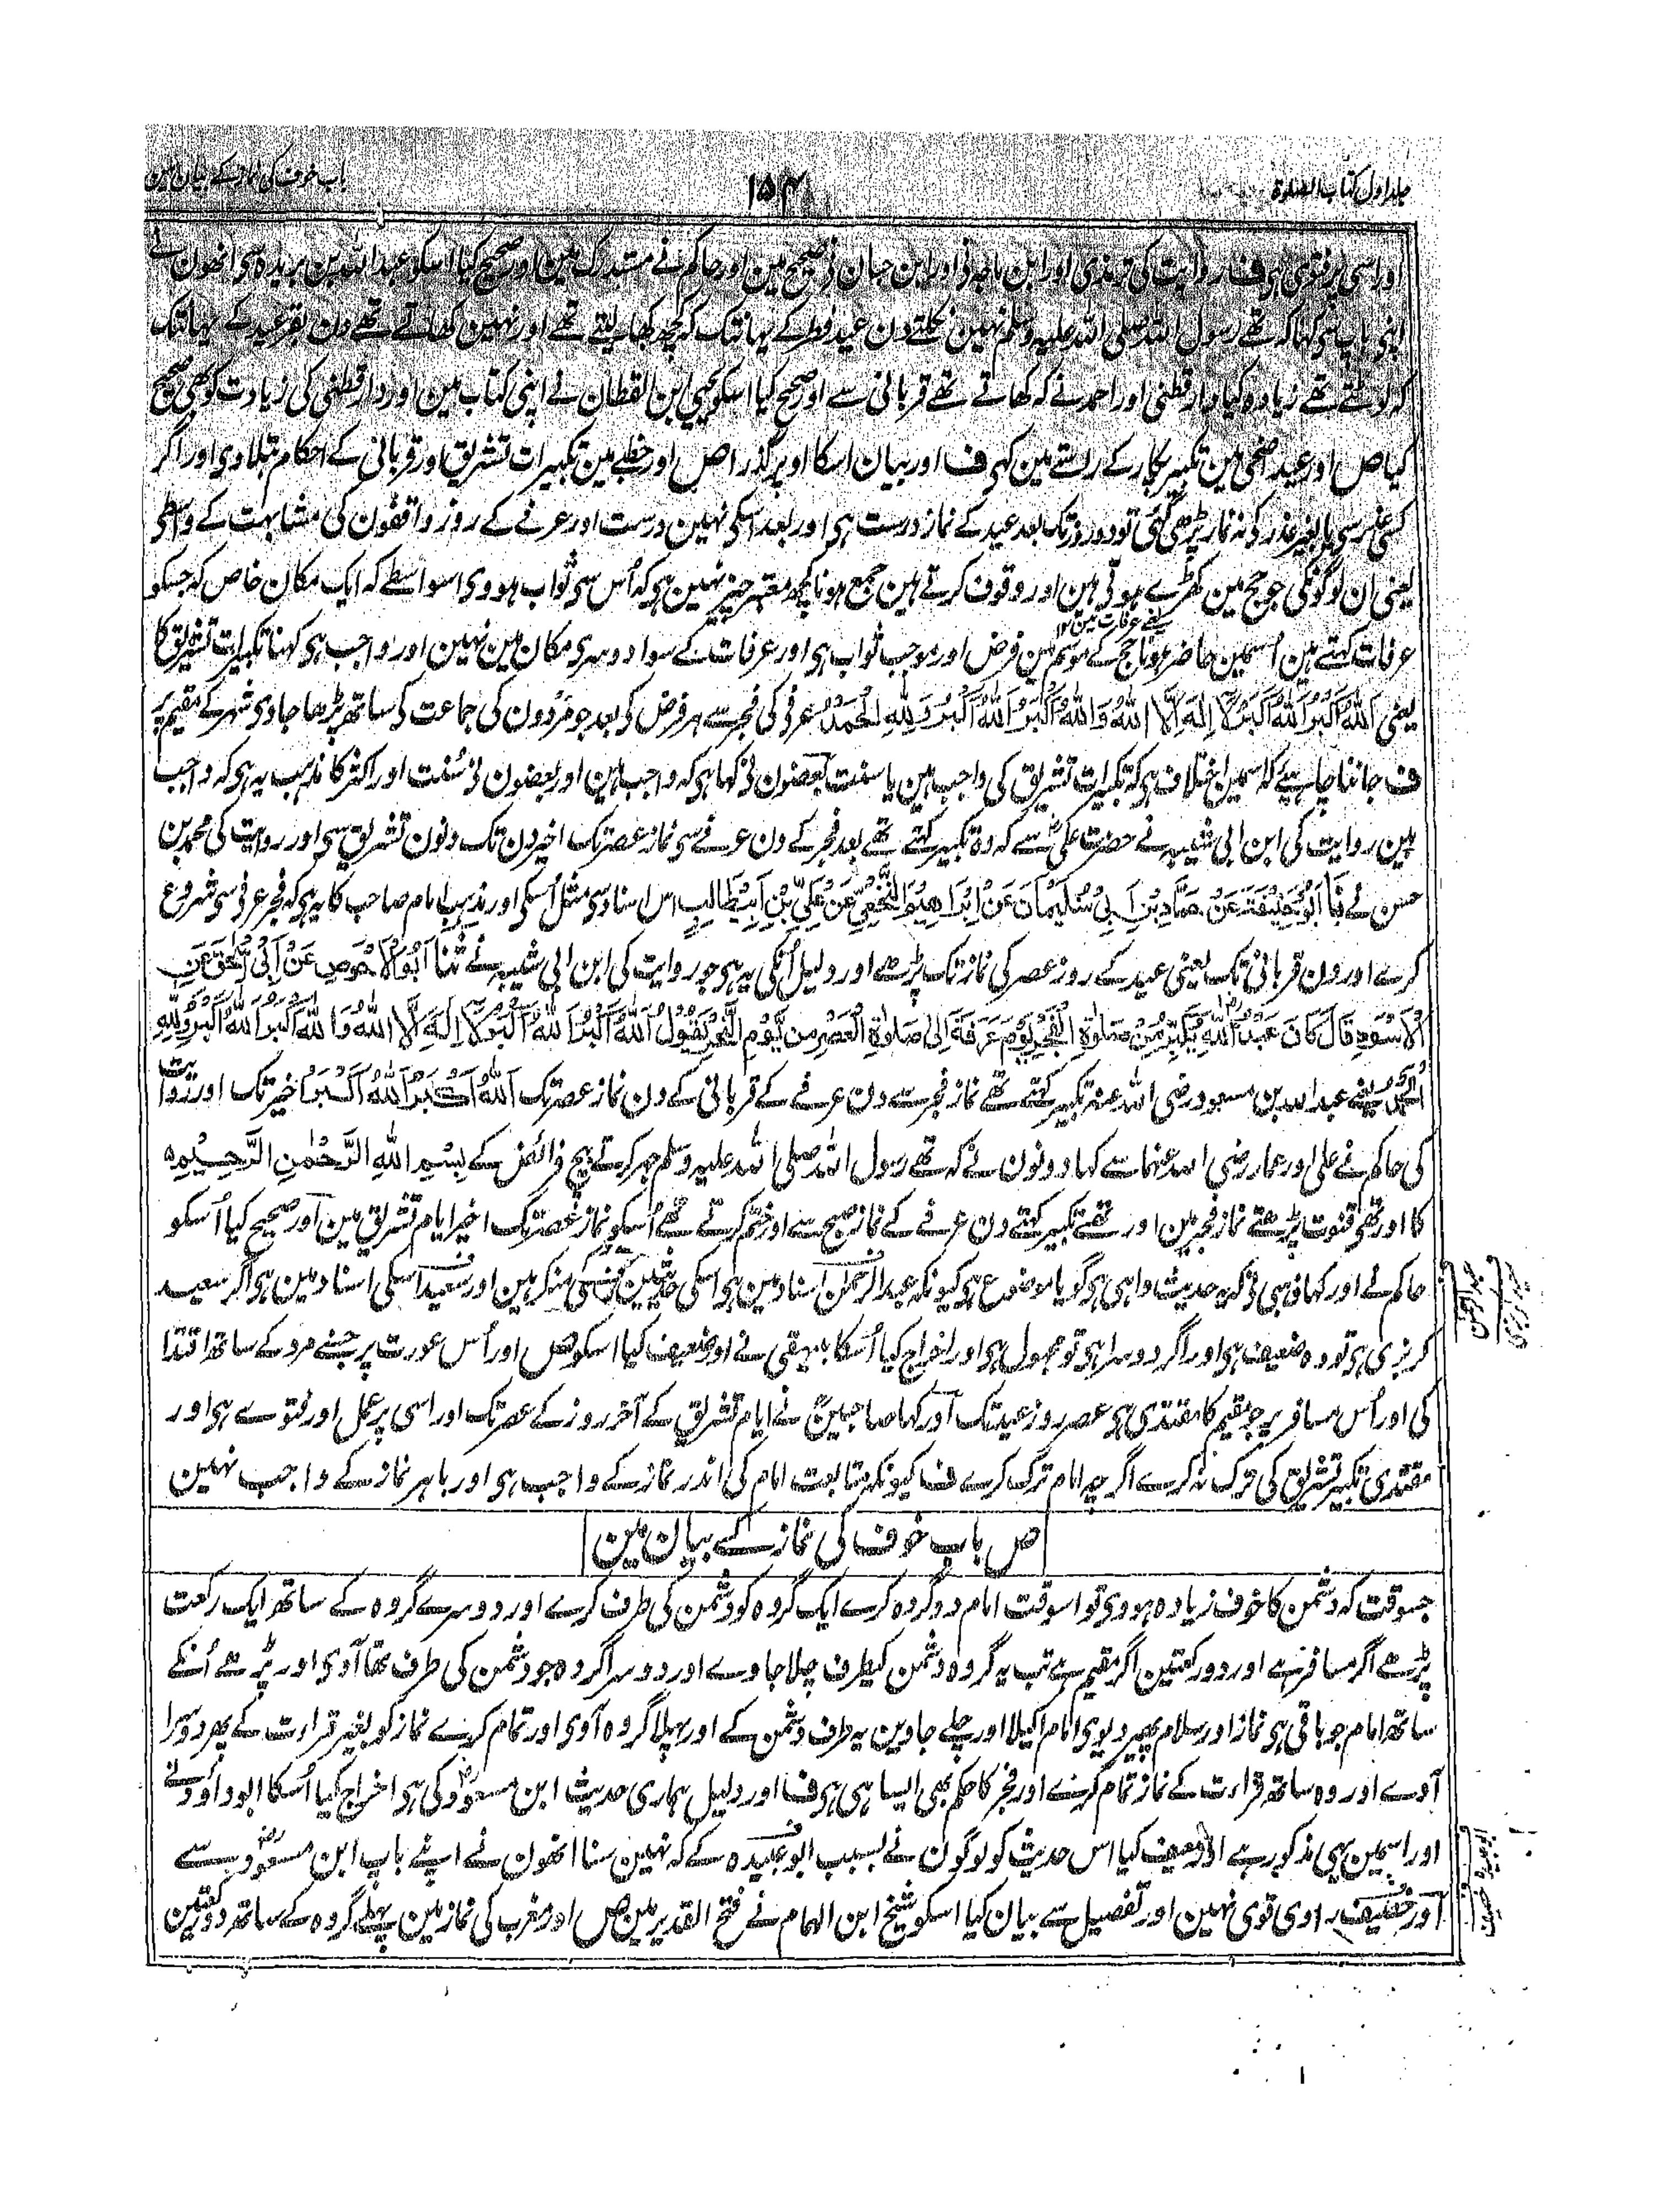 جلد اول کتاب الصلوۃ
۱۵۴
باب خوف کی نماز کے بیان مین
اور اسی پر فتوی ہی ف روایت کی ترمذی اور ابن ماجہ نی اور ابن حبان نی صحیح مین اور حاکم نے مستدرک مین اور صحیح کیا اسکو عبداللہ بن بریدہ سی انھون نے
اپنی باپ سی کہا کہ تھے رسول اللہ صلی اللہ علیہ وسلم نہین نکلتے دن عید فطر کے یہانتک کہ کچھ کھا لیتے تھے اور نہین کھاتے تھے دن بقر عید کے یہانتک
کہ لوٹتے تھے زیادہ کیا دارقطنی اور احمد نے کہ کھاتے تھے قربانی سے اور صحیح کیا اسکو یحیی ابن القطان نے اپنی کتاب مین اور دارقطنی کی زیادت کو بھی صحیح
کیا ص اور عید اضحی مین تکبیر پکار کے راستے مین کہی ف اور بیان اسکا اوپر گذرا ص اور خطبے مین تکبیرات تشریق اور قربانی کے احکام بتلادی اور اگر
کسی عذر سی یا بغیر عذر کی نہ نماز پڑھی گئی تو دو روز تک بعد عید کے نماز درست ہی اور بعد اسکی نہین درست اور عرفے کے روز واقفون کی مشابہت کے واسطی
یعنی ان لوگونکی جو حج مین کھڑے ہوتی ہین اور وقوف کرتے ہین جمع ہونا کچھ معتبر چیز نہین ہی کہ اُس سی ثواب ہووی اسواسطے کہ ایک مکان خاص کہ جسکو
یعنے عرفات مین ۱۲
عرفات کہتے ہین اُسمین حاضر ہونا حج کے موسم مین فرض اور موجب ثواب ہی اور عرفات کے سوا دوسری مکان مین نہین اور واجب ہی کہنا تکبیرات تشریق کا
یعنی اَللّٰهُ اَكْبَرُ اَللّٰهُ اَكْبَرُ لَا اِلٰهَ اِلَّا اللّٰهُ وَاللّٰهُ اَكْبَرُ اَللّٰهُ اَكْبَرُ وَلِلّٰهِ الْحَمْدُ عرفی کی فجر سے ہر فرض کی بعد جو مَردون کی جماعت کی ساتھ پڑھا جاوی شہر کے مقیم پر
ف جاننا چاہیے کہ اسمین اختلاف ہی کہ تکبیرات تشریق کی واجب ہین یا سنت بعضون نی کہا ہی کہ واجب ہین اور بعضون نی سُنت اور اکثر کا مذہب یہ ہی کہ واجب
ہین روایت کی ابن ابی شیبہ نے حضرت علیؓ سے کہ وہ تکبیر کہتے تھے بعد فجر کے دن عرفے سی نماز عصر تک اخیر دن تک دنون تشریق سی اور روایت کی محمد بن
حسن نے ثَنَا اَبُوْحَنِيْفَةَ عَنْ حَمَّادِ بْنِ اَبِيْ سُلَيْمَانَ عَنْ اِبْرَاهِيْمَ النَّخَعِيِّ عَنْ عَلِيِّ بْنِ اَبِيْطَالِبٍ اس اسناد سی مثل اُسکی اور مذہب امام صاحب کا یہ ہی کہ فجر عرفی سی شروع
کرے اور دن قربانی تک یعنی عید کے روز عصر کی نماز تک پڑھے اور دلیل اُنکی یہ ہی جو روایت کی ابن ابی شیبہ نے ثَنَا اَبُو الْاَحْوَصِ عَنْ اَبِيْ اِسْحٰقَ عَنِ
الْاَسْوَدِ قَالَ كَانَ عَبْدُ اللّٰهِ يُكَبِّرُ مِنْ صَلٰوةِ الْفَجْرِ يَوْمَ عَرَفَةَ اِلٰى صَلٰوةِ الْعَصْرِ مِنْ يَّوْمِ النَّحْرِ يَقُوْلُ اَللّٰهُ اَكْبَرُ اَللّٰهُ اَكْبَرُ لَا اِلٰهَ اِلَّا اللّٰهُ وَاللّٰهُ اَكْبَرُ اَللّٰهُ اَكْبَرُ وَلِلّٰهِ
الْحَمْدُ یعنے عبداللہ بن مسعود رضی اللہ عنہ تکبیر کہتے تھے نماز فجر سے دن عرفے کے قربانی کے دن نماز عصر تک اَللّٰهُ اَكْبَرُ اَللّٰهُ اَكْبَرُ اخیر تک اور روایت
کی حاکم نے علی اور عمار رضی اللہ عنہما سے کہا دونون نے کہ تھے رسول اللہ صلی اللہ علیہ وسلم جہر کرتے بیچ فرائض کے بِسْمِ اللّٰهِ الرَّحْمٰنِ الرَّحِيْمِ
کا اور تھی قنوت پڑھتے نماز فجر مین اور تھے تکبیر کہتے دن عرفے کے نماز صبح سے اور ختم کرتے تھے اُسکو نماز عصر تک اخیر ایام تشریق مین اور صحیح کیا اُسکو
حاکم نے اور کہا ذہبی نی کہ یہ حدیث واہی ہی گویا موضوع ہی کیونکہ عبدالرحمٰن اسناد مین ہی اسکی حدیثین منکر ہین اور سعید اسکی اسناد مین ہی اگر سعید
کریزی ہی تو وہ ضعیف ہی اور اگر دوسرا ہی تو مجہول ہی اور اخراج کیا اُسکا بیہقی نے اور ضعیف کیا اسکو ص اور اُس عورت پر جسنے مرد کے ساتھ اقتدا
کی اور اُس مسافر پر جو مقیم کا مقتدی ہی عصر روز عید تک اور کہا صاحبینؒ نے ایام تشریق کے آخر روز کے عصر تک اور اسی پر عمل اور فتوے ہی اور
مقتدی تکبیر تشریق کی ترک نہ کرے اگرچہ امام ترک کرے ف کیونکہ متابعت امام کی اندر نماز کے واجب ہی اور باہر نماز کے واجب نہین
ص باب خوف کی نماز کے بیان مین
جسوقت کہ دشمن کا خوف زیادہ ہووی تو اسوقت امام دو گروہ کرے ایک گروہ کو دشمن کی طرف کرے اور دوسرے گروہ کے ساتھ ایک رکعت
پڑھے اگر مسافر ہے اور دو رکعتین اگر مقیم ہے تب یہ گروہ دشمن کیطرف چلا جاوے اور دوسرا گروہ جو دشمن کی طرف تھا آوی اور پڑھے اُنکے
ساتھ امام جو باقی ہی نماز اور سلام پھیر دیوی امام اکیلا اور چلے جاوین یہ طرف دشمن کے اور پہلا گروہ آوی اور تمام کرے نماز کو بغیر قراءت کے پھر دوسرا
آوے اور وہ ساتھ قراءت کے نماز تمام کرے اور فجر کا حکم بھی ایسا ہی ہی ف اور دلیل ہماری حدیث ابن مسعودؓ کی ہی اخراج کیا اُسکا ابوداؤد نے
اور اسمین یہی مذکور ہے اور ضعیف کیا اس حدیث کو لوگون نے بسبب ابو عبیدہ کے کہ نہین سنا انھون نے اپنے باپ ابن مسعودؓ سے
اور خصیف راوی قوی نہین اور تفصیل سے بیان کیا اسکو شیخ ابن الہمام نے فتح القدیر مین ص اور مغرب کی نماز مین پہلے گروہ کے ساتھ دو رکعتین
عبدالرحمن